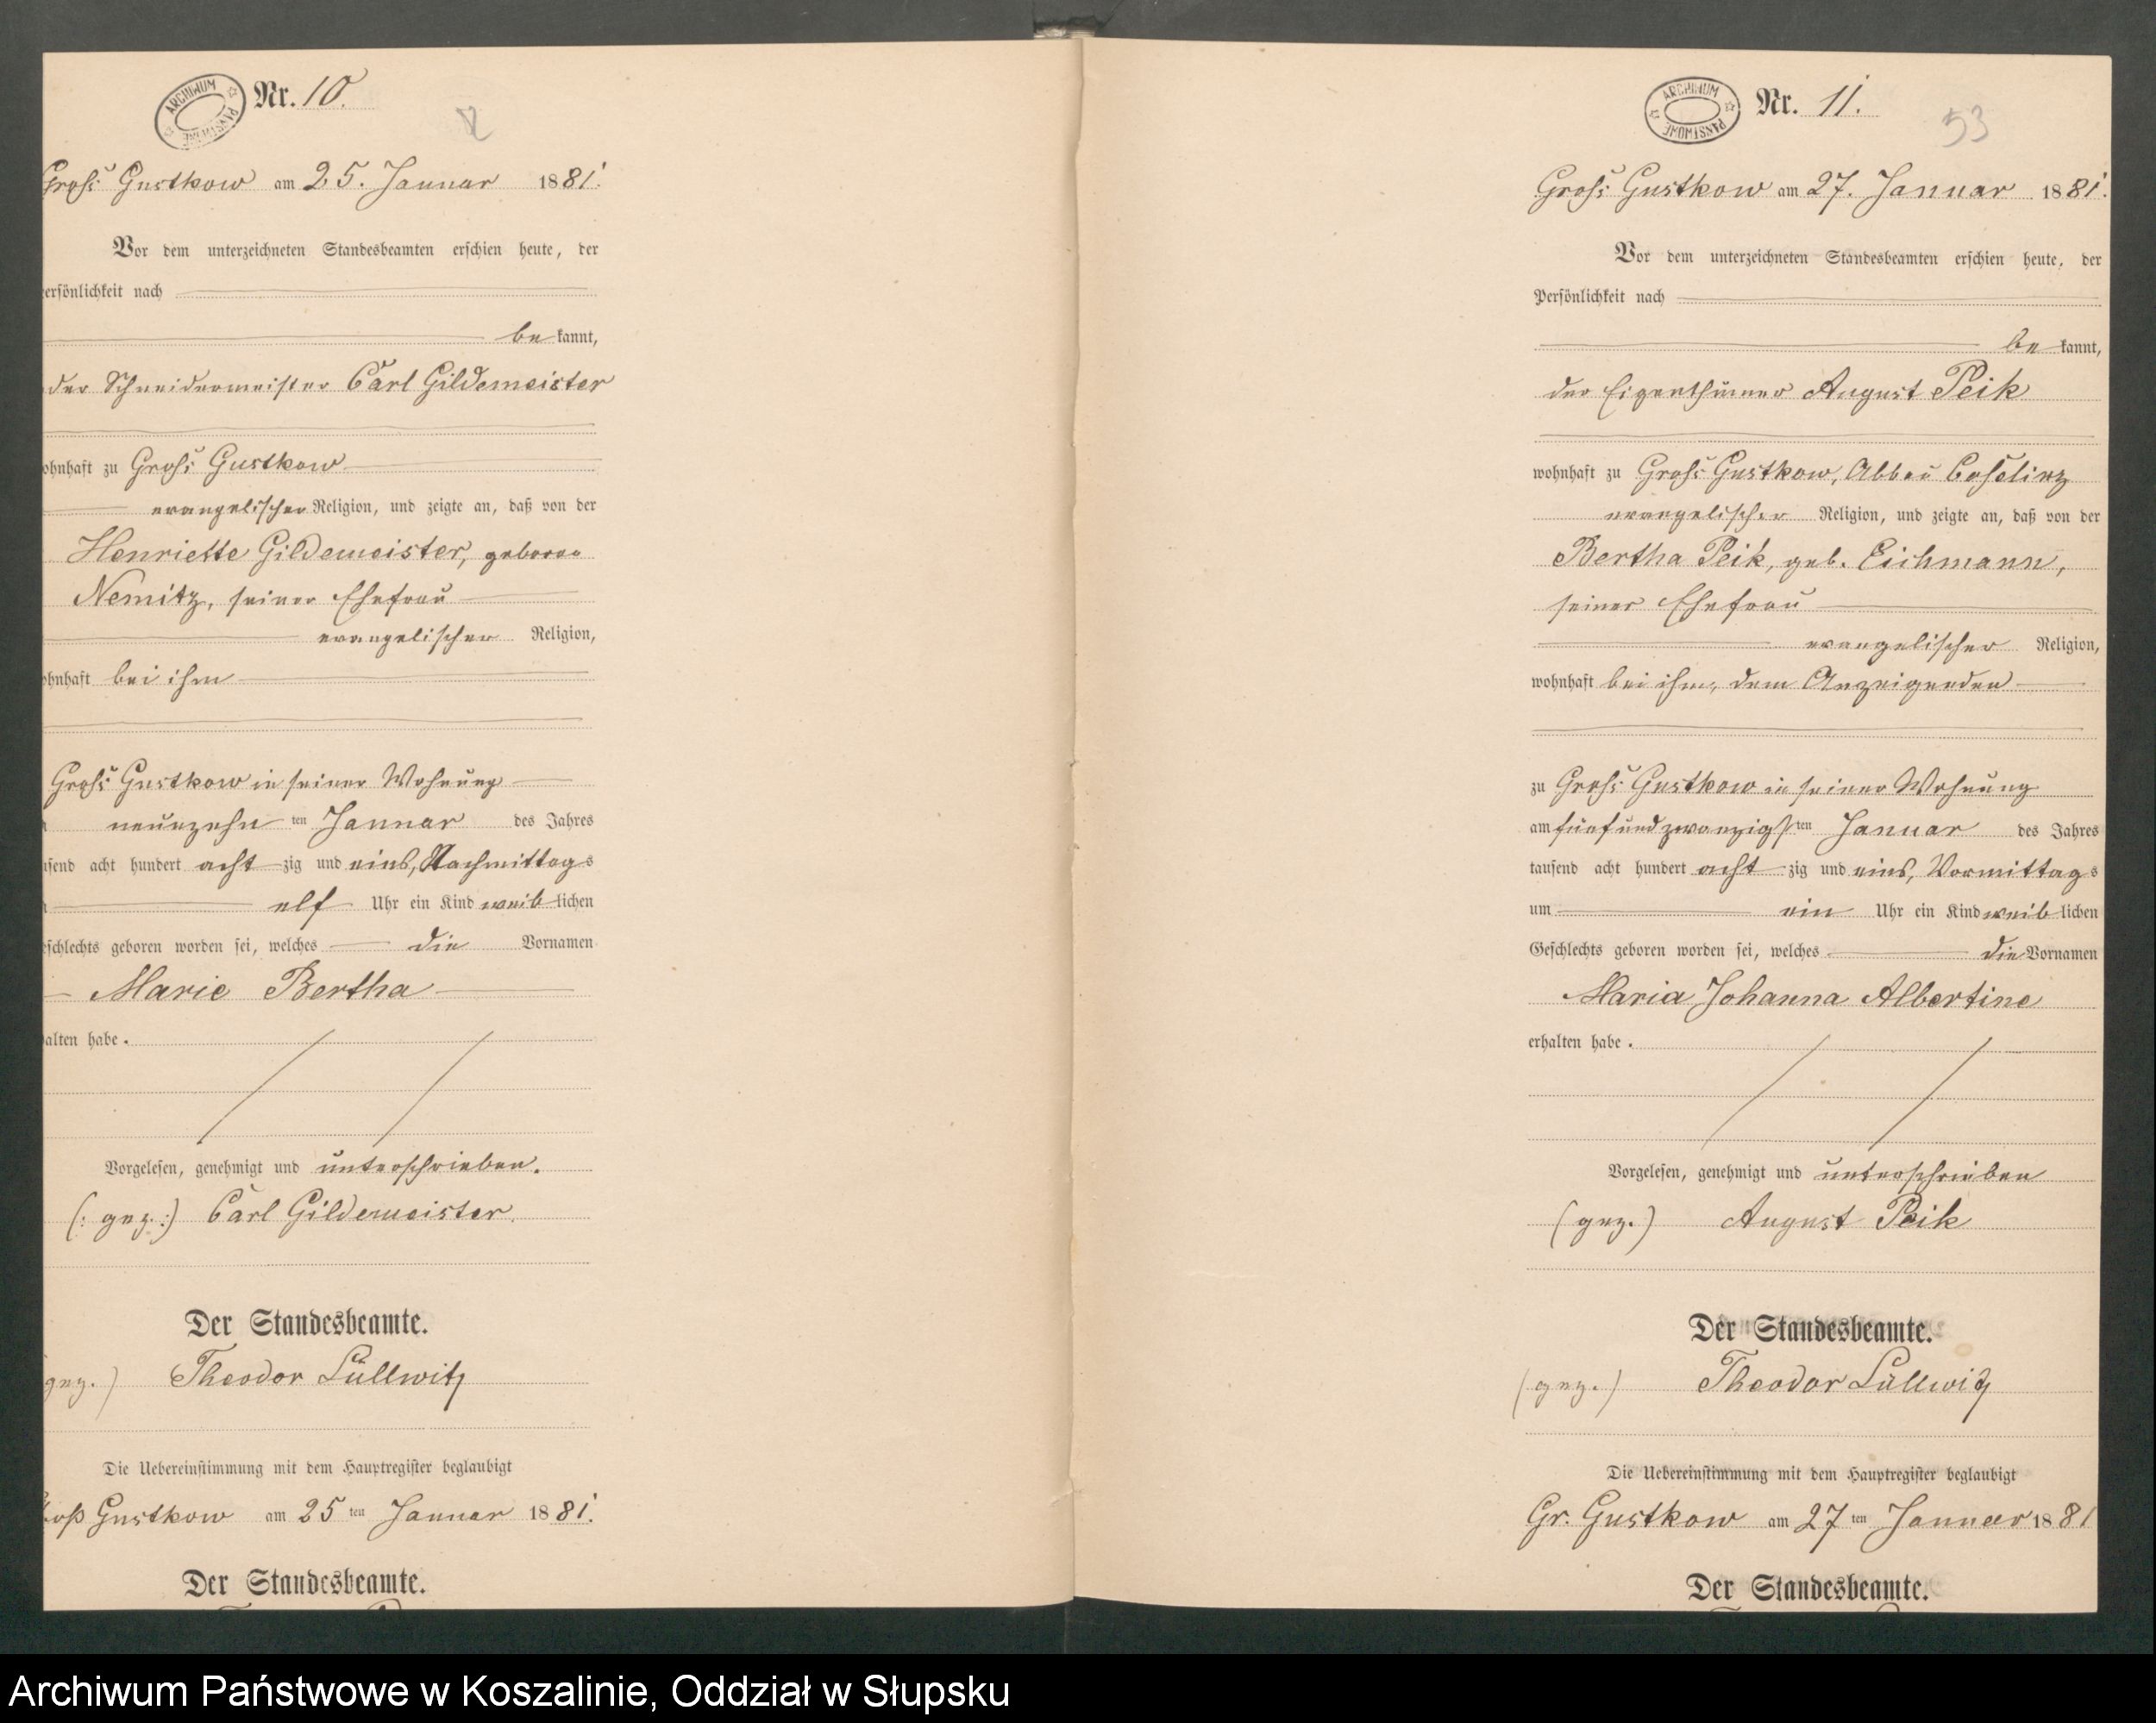 ARCHIWUM PAŃSTWOWE
Nr. 10.
Groß Gustkow am 25. Januar 1881.
Vor dem unterzeichneten Standesbeamten erschien heute, der
ersönlichkeit nach
be kannt,
der Schneidermeister Carl Gildemeister
ohnhaft zu Groß Gustkow
evangelischer Religion, und zeigte an, daß von der
Henriette Gildemeister, geboren
Nemitz, seiner Ehefrau
evangelischer Religion,
ohnhaft bei ihm
Groß Gustkow in seiner Wohnung
neunzehn ten Januar des Jahres
usend acht hundert acht zig und eins, Nachmittags
elf Uhr ein Kind weib lichen
eschlechts geboren worden sei, welches die Vornamen
Marie Bertha
alten habe.
Vorgelesen, genehmigt und unterschrieben.
(: gez. :) Carl Gildemeister.
Der Standesbeamte.
gez.) Theodor Lüllwitz
Die Uebereinstimmung mit dem Hauptregister beglaubigt
roß Gustkow am 25 ten Januar 1881.
Der Standesbeamte.
ARCHIWUM PAŃSTWOWE
Nr. 11.
53
Groß Gustkow am 27. Januar 1881.
Vor dem unterzeichneten Standesbeamten erschien heute, der
Persönlichkeit nach
be kannt,
der Eigenthümer August Peik
wohnhaft zu Groß Gustkow, Abbau
evangelischer Religion, und zeigte an, daß von der
Bertha Peik, geb. Eichmann,
seiner Ehefrau
evangelischer Religion,
wohnhaft bei ihm, dem Anzeigenden
zu Groß Gustkow in seiner Wohnung
am fünfundzwanzigsten Januar des Jahres
tausend acht hundert acht zig und eins, Vormittags
um ein Uhr ein Kind weib lichen
Geschlechts geboren worden sei, welches die Vornamen
Maria Johanna Albertine
erhalten habe.
Vorgelesen, genehmigt und unterschrieben
(gez.) August Peik
Der Standesbeamte.
(gez.) Theodor Lüllwitz
Die Uebereinstimmung mit dem Hauptregister beglaubigt
Gr. Gustkow am 27 ten Januar 1881
Der Standesbeamte.
Archiwum Państwowe w Koszalinie, Oddział w Słupsku